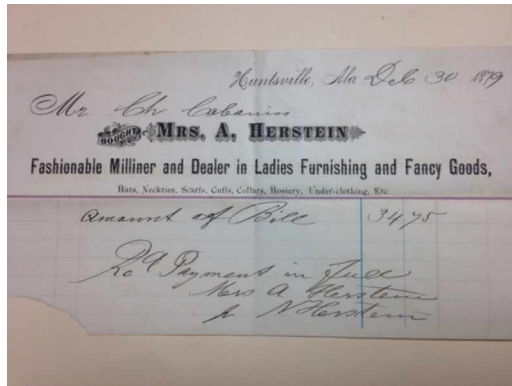 Huntsville, Ala Dec 30 1879
Mr Ch Cabaniss
BOUGHT OF MRS. A. HERSTEIN
Fashionable Milliner and Dealer in Ladies Furnishing and Fancy Goods,
Hats, Neckties, Scarfs, Cuffs, Collars, Hosiery, Under-clothing, Etc.
Amount of Bill 34 75
Recd Payment in Full
Mrs A Herstein
pr N Herstein